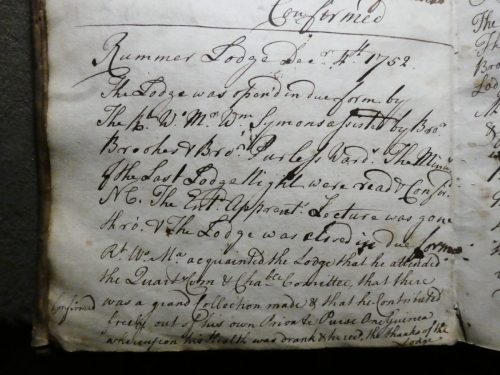 Confirmed
Rummer Lodge Decr. 4th. 1752
The Lodge was opend in due form by
The Rt. Wl. Mr. Wm. Symons assisted by Bro:
Brooker & Bror. Purless Wards. The Minits
of the Last Lodge Night were read & Confir:
NC. The Entd. Apprent. Lecture was gone
thro: & The Lodge was closed in due forme
Rt. Wl. Ma acquainted the Lodge that he attended
the Quart Com & Chable Committee, that there
was a grand Collection made & that he Contributed
confirmed
freely out of his own Private Purse One Guinea
whereupon his Health was drank & hired, the thanks of the
Lodge
The
of th
Bro
Lod